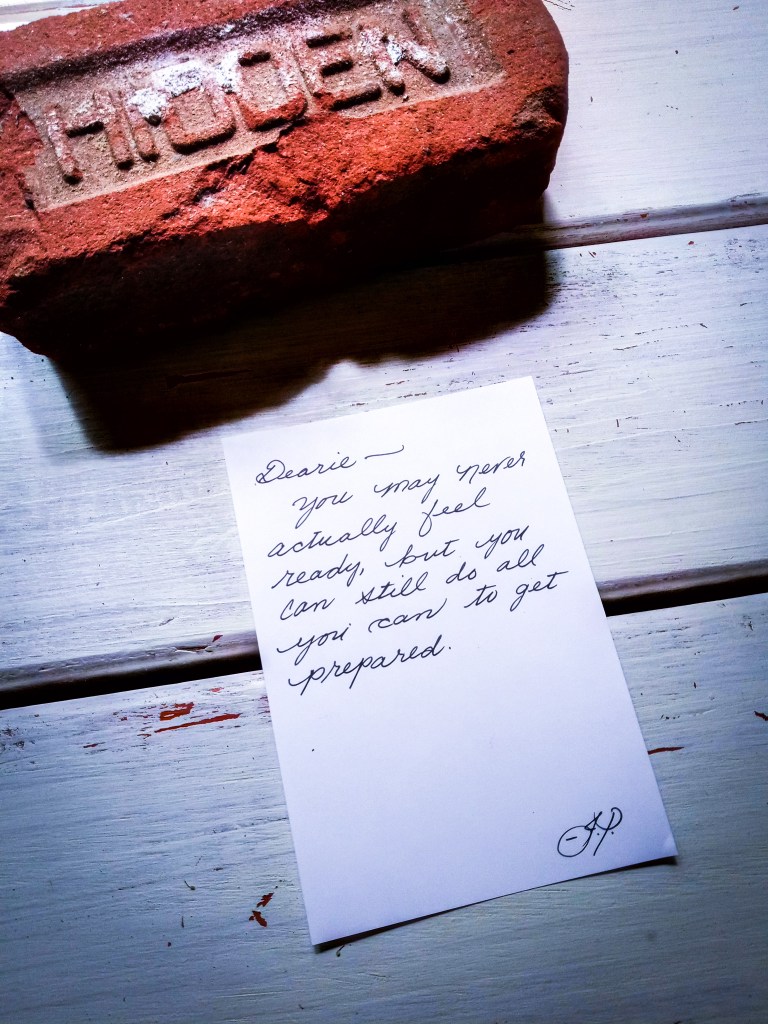 HIDDEN
Dearie —
you may never
actually feel
ready, but you
can still do all
you can to get
prepared.